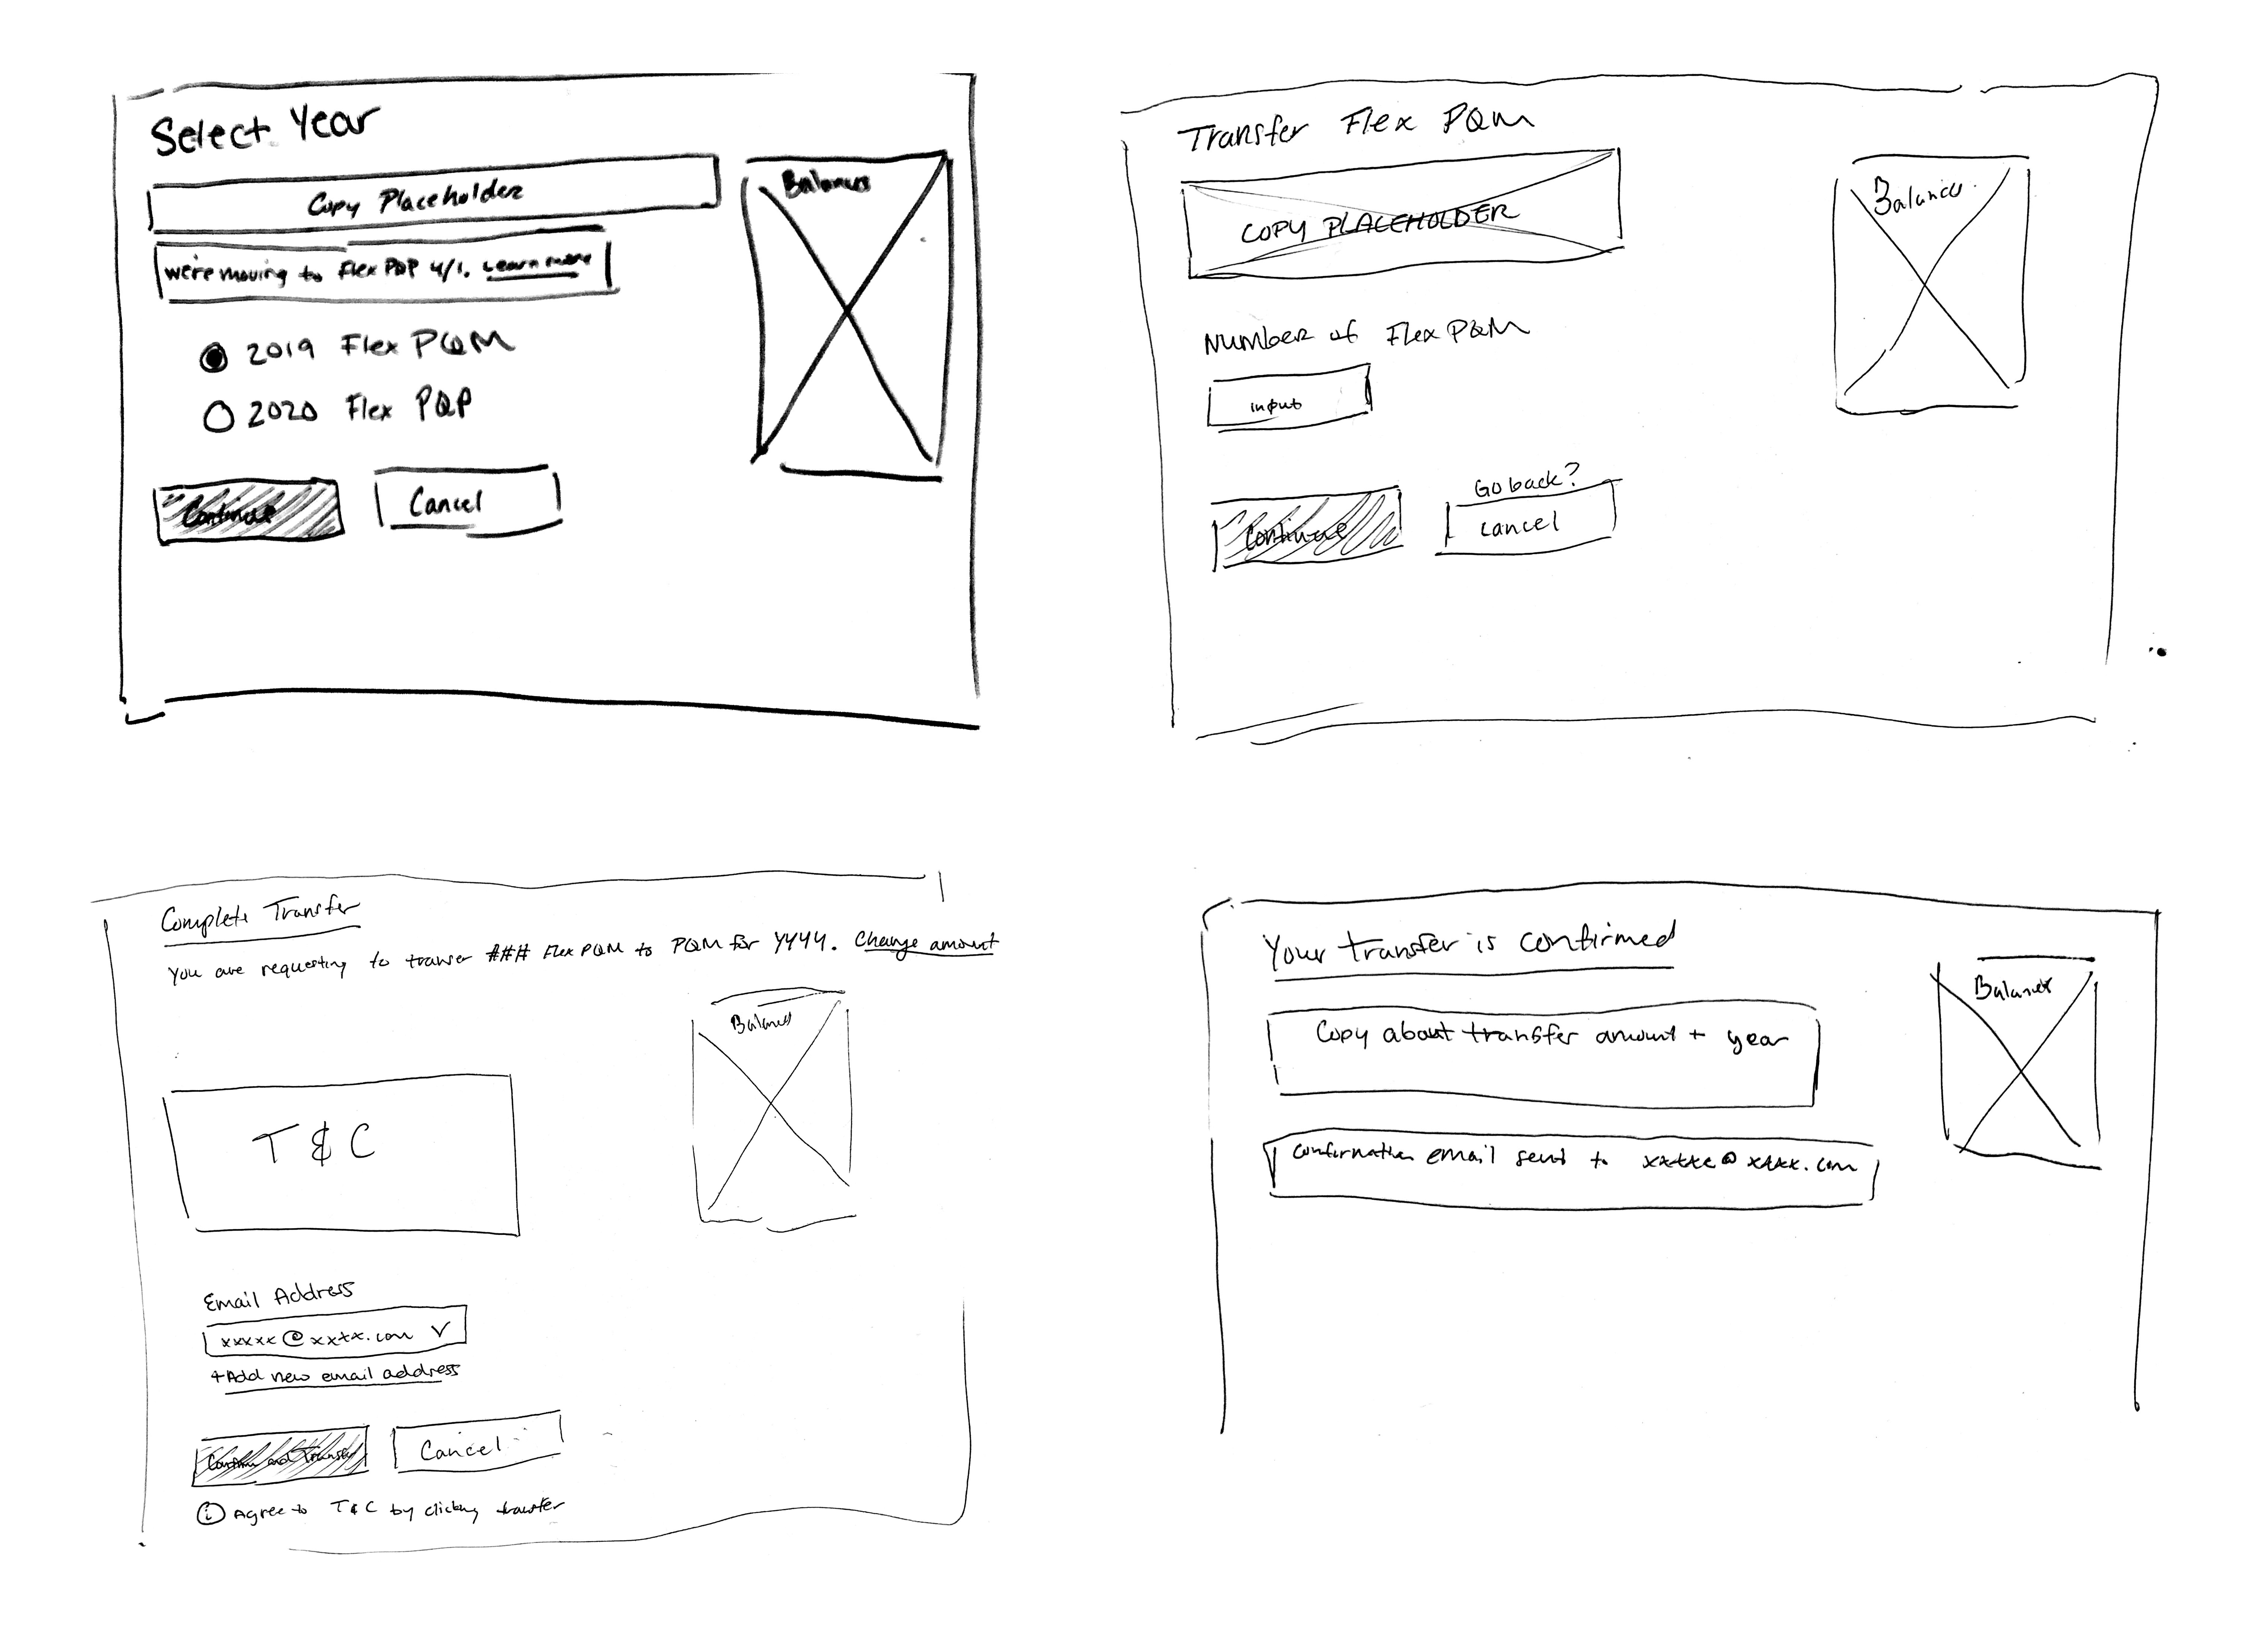 Select Year
Copy Placeholder
Balances
we're moving to Flex PQP 4/1. Learn more
2019 Flex PQM
2020 Flex PQP
Continue
Cancel
Transfer Flex PQM
COPY PLACEHOLDER
Balances
Number of Flex PQM
input
Go back?
Continue
Cancel
Complete Transfer
You are requesting to transer ### Flex PQM to PQM for YYYY. Change amount
Balances
T & C
Email Address
xxxxx@xxxx.com
+Add new email address
Confirm and Transfer
Cancel
i Agree to T & C by clicking transfer
Your transfer is confirmed
Balances
Copy about transfer amount + year
Confirmation email sent to xxxxx@xxxx.com